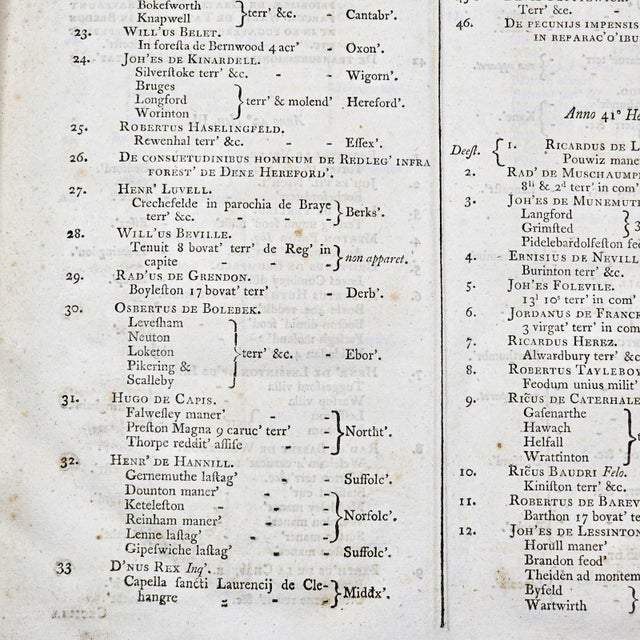 Bokesworth
Knapwell } terr' &c. - Cantabr'.
23. WILL'US BELET.
In foresta de Bernwood 4 acr' - Oxon'.
24. JOH'ES DE KINARDELL.
Silverstoke terr' &c. - - Wigorn'.
Bruges
Longford } terr' & molend' Hereford'.
Worinton
25. ROBERTUS HASELINGFELD.
Rewenhal terr' &c. - - Essex'.
26. DE CONSUETUDINIBUS HOMINUM DE REDLEG' INFRA
FOREST' DE DENE HEREFORD'.
27. HENR' LUVELL.
Crechefelde in parochia de Braye
terr' &c. - - - } Berks'.
28. WILL'US BEVILLE.
Tenuit 8 bovat' terr' de Reg' in
capite - - - } non apparet.
29. RAD'US DE GRENDON.
Boyleston 17 bovat' terr' - Derb'.
30. OSBERTUS DE BOLEBEK.
Levesham
Neuton
Loketon } terr' &c. - Ebor'.
Pikering &
Scalleby
31. HUGO DE CAPIS.
Falwesley maner' - -
Preston Magna 9 caruc' terr' - } Northt'.
Thorpe reddit' assise -
32. HENR' DE HANNILL.
Gernemuthe lastag' - Suffolc'.
Dounton maner' - -
Keteleston - -
Reinham maner' - - } Norfolc'.
Lenne lastag' - -
Gipeswiche lastag' - Suffolc'.
33 D'NUS REX Inq'.
Capella sancti Laurencij de Cle-
hangre - - - } Middx'.
Terr' &c.
46. DE PECUNIJS IMPENSIS
IN REPARAC'O'IBU
Anno 41° He
Deest. { 1. RICARDUS DE L
Pouwiz mane
2. RAD' DE MUSCHAUMP
8li & 2d terr' in com'
3. JOH'ES DE MUNEMUT
Langford
Grimsted } 3
Pidelebardolfeston feo
4. ERNISIUS DE NEVILL
Burinton terr' &c.
5. JOH'ES FOLEVILE.
13l 10s terr' in com'
6. JORDANUS DE FRANCK
3 virgat' terr' in com'
7. RICARDUS HEREZ.
Alwardbury terr' &c
8. ROBERTUS TAYLEBOY
Feodum unius milit'
9. RIC̃US DE CATERHALE
Gasenarthe
Hawach
Helfall
Wrattinton
10. RIC̃US BAUDRI Felo.
Kiniston terr' &c.
11. ROBERTUS DE BAREV
Barthon 17 bovat' te
12. JOH'ES DE LESSINTON
Horull maner'
Brandon feod'
Theiden ad montem
Byfeld
Wartwirth }